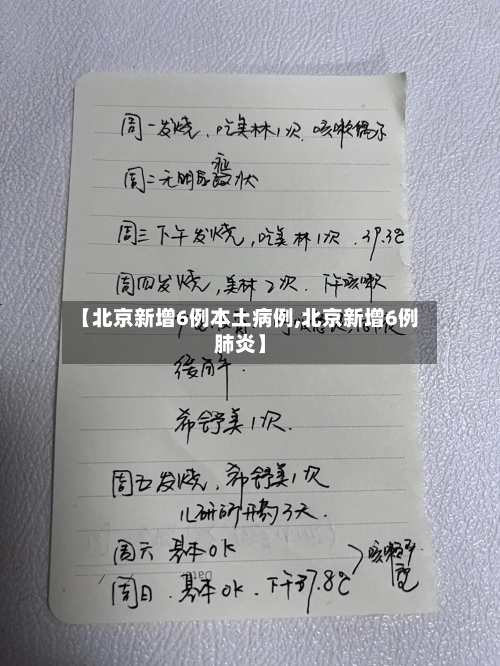 周一发烧，吃美林1次，咳嗽偶尔
周二无明显症状
周三下午发烧，吃美林1次，39.3℃
周四发烧，美林2次，下午咳嗽
【北京新增6例本土病例,北京新增6例
肺炎】
希舒美1次.
周五发烧，希舒美1次
儿研所开药3天.
周六 基本OK
周日．基本OK．下午37.8℃
咳嗽